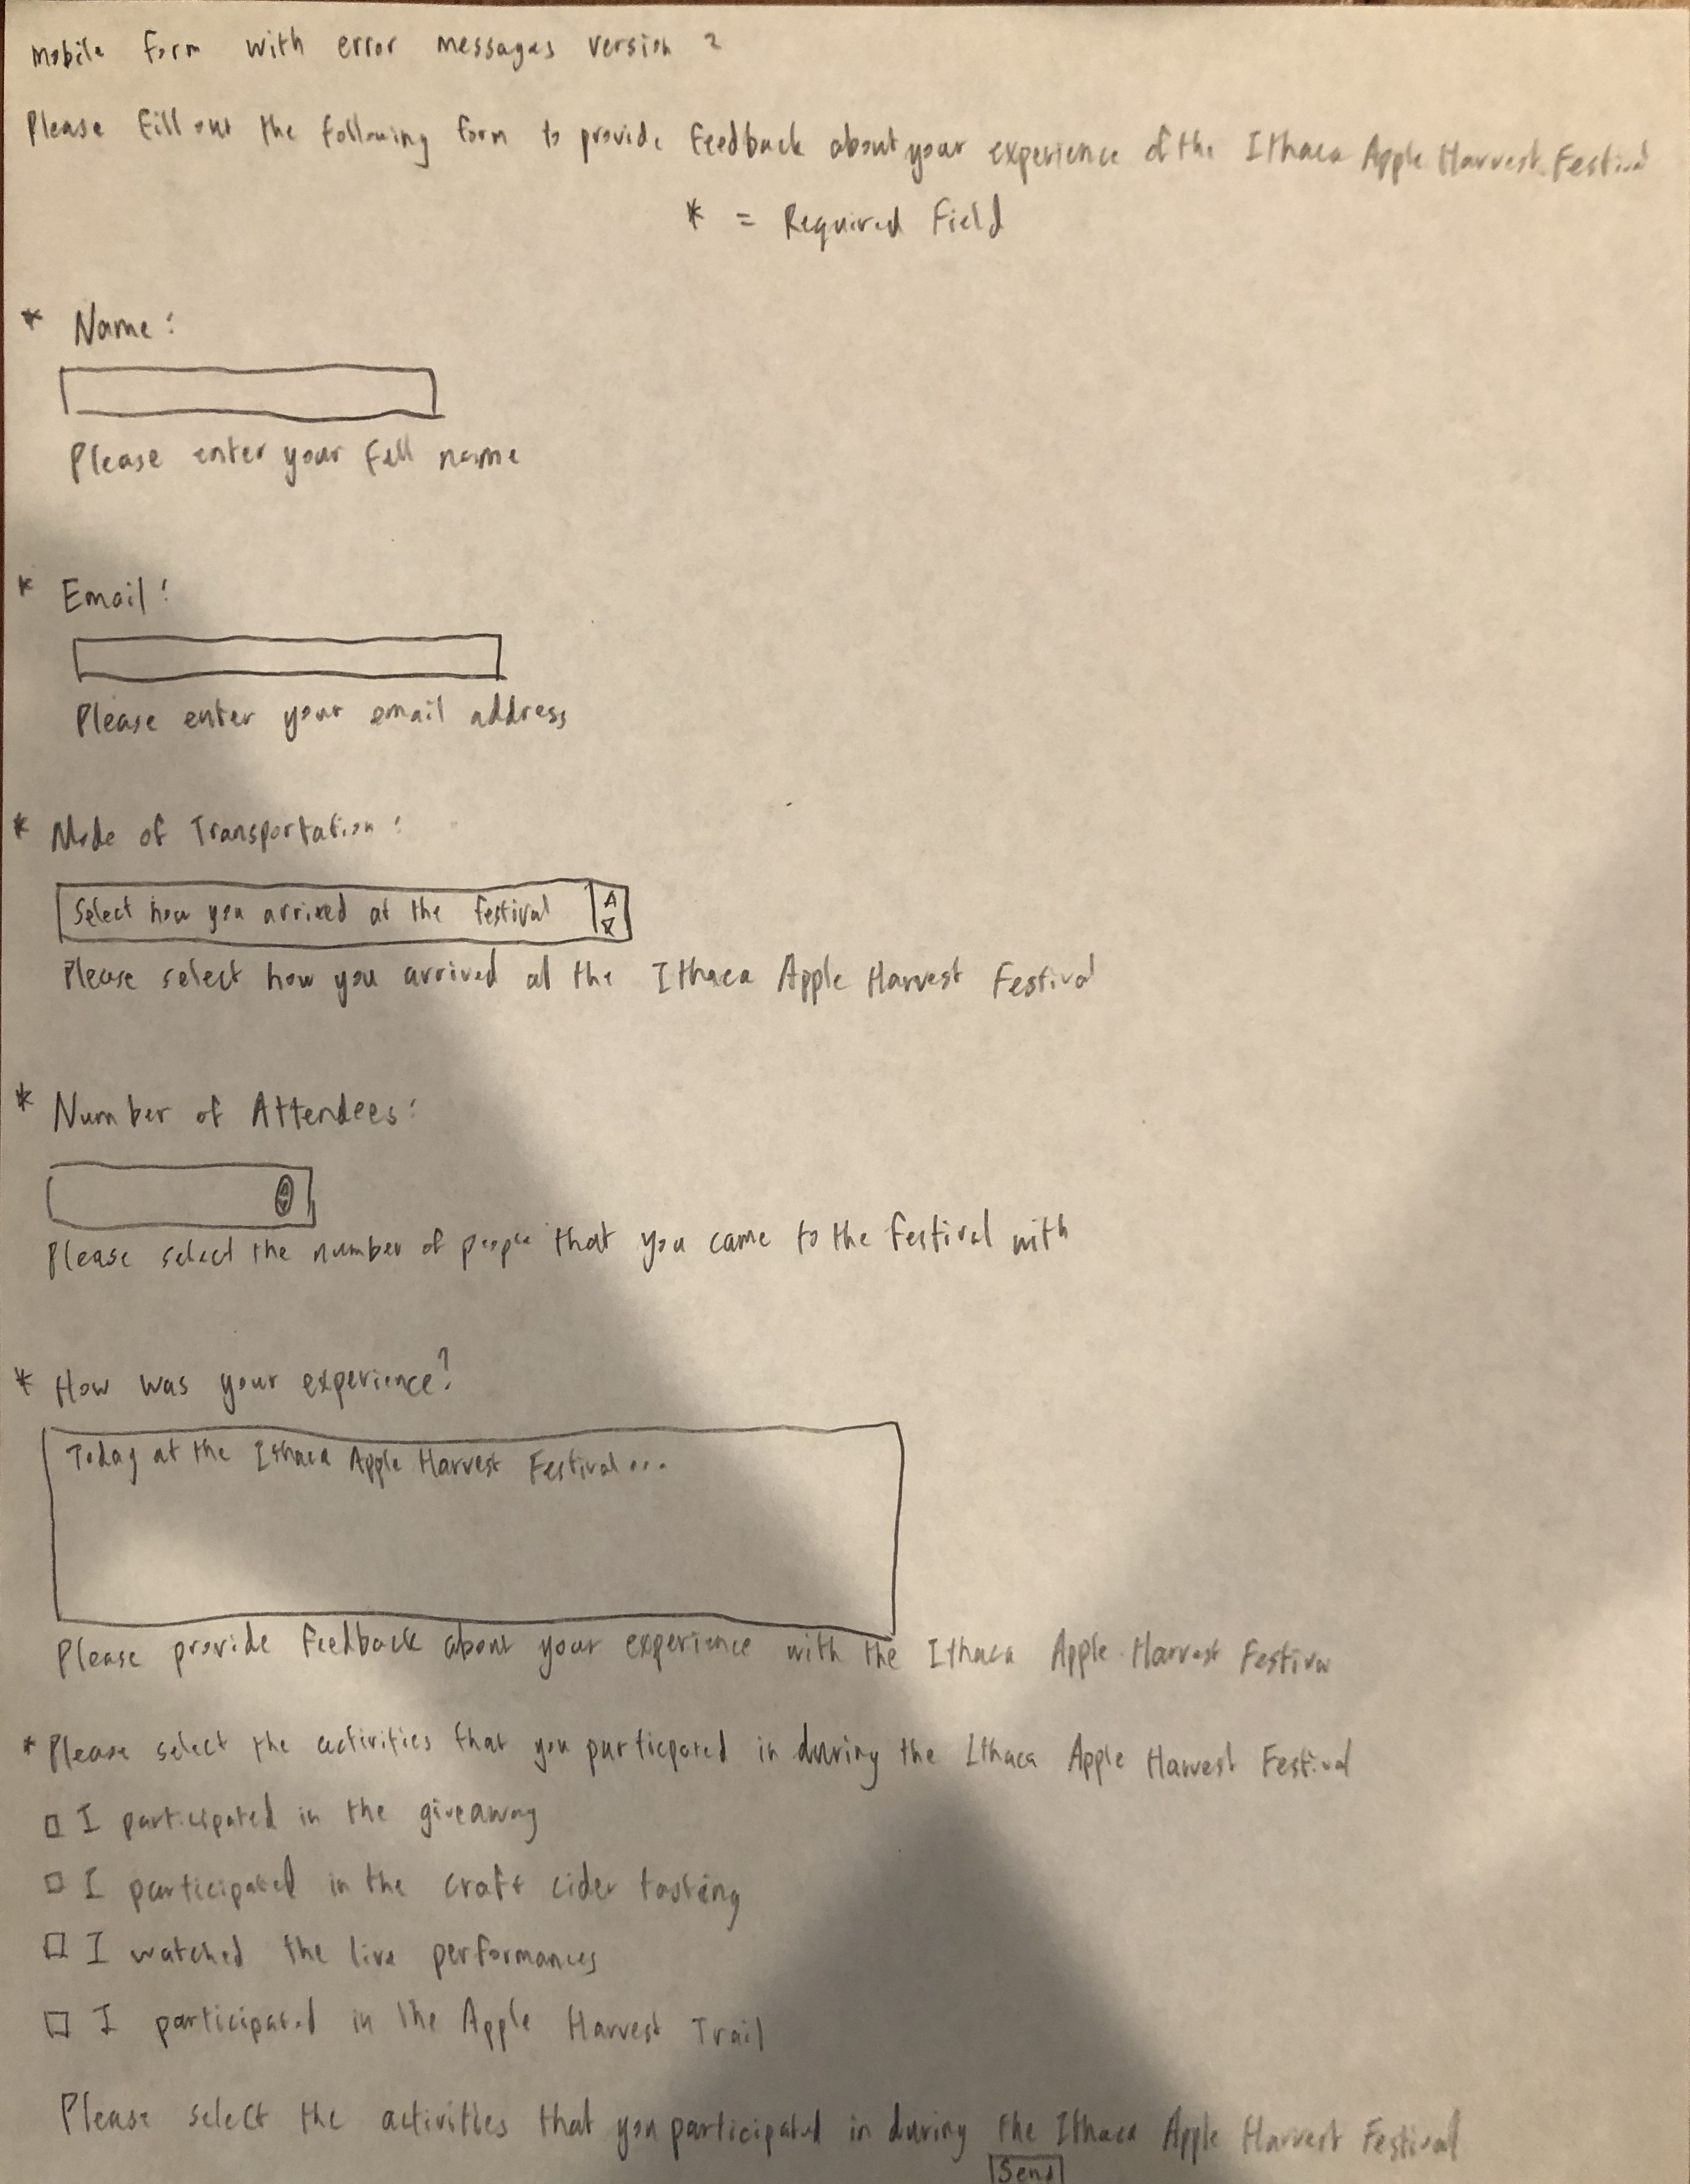 mobile form with error messages version 2
Please fill out the following form to provide feedback about your experience of the Ithaca Apple Harvest Festival
* = Required Field
* Name:
Please enter your full name
* Email:
Please enter your email address
* Mode of Transportation:
Select how you arrived at the festival
Please select how you arrived at the Ithaca Apple Harvest Festival
* Number of Attendees:
Please select the number of people that you came to the festival with
* How was your experience?
Today at the Ithaca Apple Harvest Festival...
Please provide feedback about your experience with the Ithaca Apple Harvest Festival
* Please select the activities that you particpated in during the Ithaca Apple Harvest Festival
I participated in the giveaway
I participated in the craft cider tasting
I watched the live performances
I participated in the Apple Harvest Trail
Please select the activities that you participated in during the Ithaca Apple Harvest Festival
Send